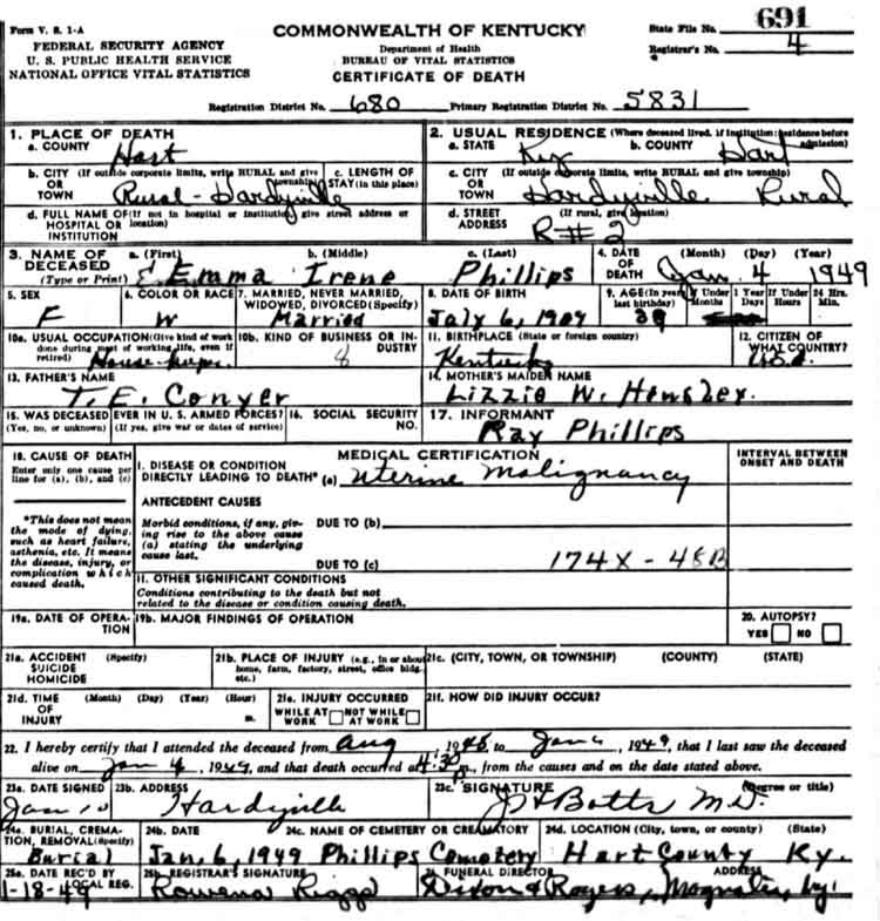 Form V. S. 1-A
FEDERAL SECURITY AGENCY
U. S. PUBLIC HEALTH SERVICE
NATIONAL OFFICE VITAL STATISTICS
COMMONWEALTH OF KENTUCKY
Department of Health
BUREAU OF VITAL STATISTICS
CERTIFICATE OF DEATH
State File No. 691
Registrar's No. 4
Registration District No. 680 Primary Registration District No. 5831
1. PLACE OF DEATH
a. COUNTY Hart
2. USUAL RESIDENCE (Where deceased lived. If institution: residence before admission)
a. STATE Ky b. COUNTY Hart
b. CITY (If outside corporate limits, write RURAL and give township)
OR TOWN Rural - Hardyville
c. LENGTH OF STAY (in this place)
c. CITY (If outside corporate limits, write RURAL and give township)
OR TOWN Hardyville Rural
d. FULL NAME OF (If not in hospital or institution, give street address or location)
HOSPITAL OR INSTITUTION
d. STREET ADDRESS (If rural, give location)
R#2
3. NAME OF DECEASED (Type or Print)
a. (First) b. (Middle) c. (Last)
Emma Irene Phillips
4. DATE OF DEATH (Month) (Day) (Year)
Jan. 4 1949
5. SEX
F
6. COLOR OR RACE
W
7. MARRIED, NEVER MARRIED, WIDOWED, DIVORCED (Specify)
Married
8. DATE OF BIRTH
July 6, 1909
9. AGE (In years last birthday) If Under 1 Year Months Days If Under 24 Hrs. Hours Min.
39
10a. USUAL OCCUPATION (Give kind of work done during most of working life, even if retired)
10b. KIND OF BUSINESS OR INDUSTRY
11. BIRTHPLACE (State or foreign country)
Kentucky
12. CITIZEN OF WHAT COUNTRY?
13. FATHER'S NAME
T. E. Conyer
14. MOTHER'S MAIDEN NAME
Lizzie W. Hensley.
15. WAS DECEASED EVER IN U. S. ARMED FORCES?
(Yes, no, or unknown) (If yes, give war or dates of service)
16. SOCIAL SECURITY NO.
17. INFORMANT
Ray Phillips
18. CAUSE OF DEATH
Enter only one cause per line for (a), (b), and (c)
MEDICAL CERTIFICATION
INTERVAL BETWEEN ONSET AND DEATH
I. DISEASE OR CONDITION
DIRECTLY LEADING TO DEATH* (a) Uterine Malignancy
*This does not mean the mode of dying, such as heart failure, asthenia, etc. It means the disease, injury, or complication which caused death.
ANTECEDENT CAUSES
Morbid conditions, if any, giving rise to the above cause (a) stating the underlying cause last.
DUE TO (b)
DUE TO (c)
174X - 48B
II. OTHER SIGNIFICANT CONDITIONS
Conditions contributing to the death but not related to the disease or condition causing death.
19a. DATE OF OPERATION
19b. MAJOR FINDINGS OF OPERATION
20. AUTOPSY?
YES NO
21a. ACCIDENT SUICIDE HOMICIDE (Specify)
21b. PLACE OF INJURY (e.g., in or about home, farm, factory, street, office bldg. etc.)
21c. (CITY, TOWN, OR TOWNSHIP) (COUNTY) (STATE)
21d. TIME OF INJURY (Month) (Day) (Year) (Hour) m.
21e. INJURY OCCURRED
WHILE AT WORK NOT WHILE AT WORK
21f. HOW DID INJURY OCCUR?
22. I hereby certify that I attended the deceased from Aug, 1948 to Jan, 1949, that I last saw the deceased
alive on Jan 4, 1949, and that death occurred at 4:30 P m., from the causes and on the date stated above.
23a. DATE SIGNED
Jan 10
23b. ADDRESS
Hardyville
23c. SIGNATURE (Degree or title)
Botts M.D.
24a. BURIAL, CREMATION, REMOVAL (Specify)
Burial
24b. DATE
Jan. 6, 1949
24c. NAME OF CEMETERY OR CREMATORY
Phillips Cemetery
24d. LOCATION (City, town, or county) (State)
Hart County Ky.
25a. DATE REC'D BY LOCAL REG.
1-18-49
25b. REGISTRAR'S SIGNATURE
Rowena Riggs
FUNERAL DIRECTOR ADDRESS
Dixon & Rogers, Magnolia, Ky.